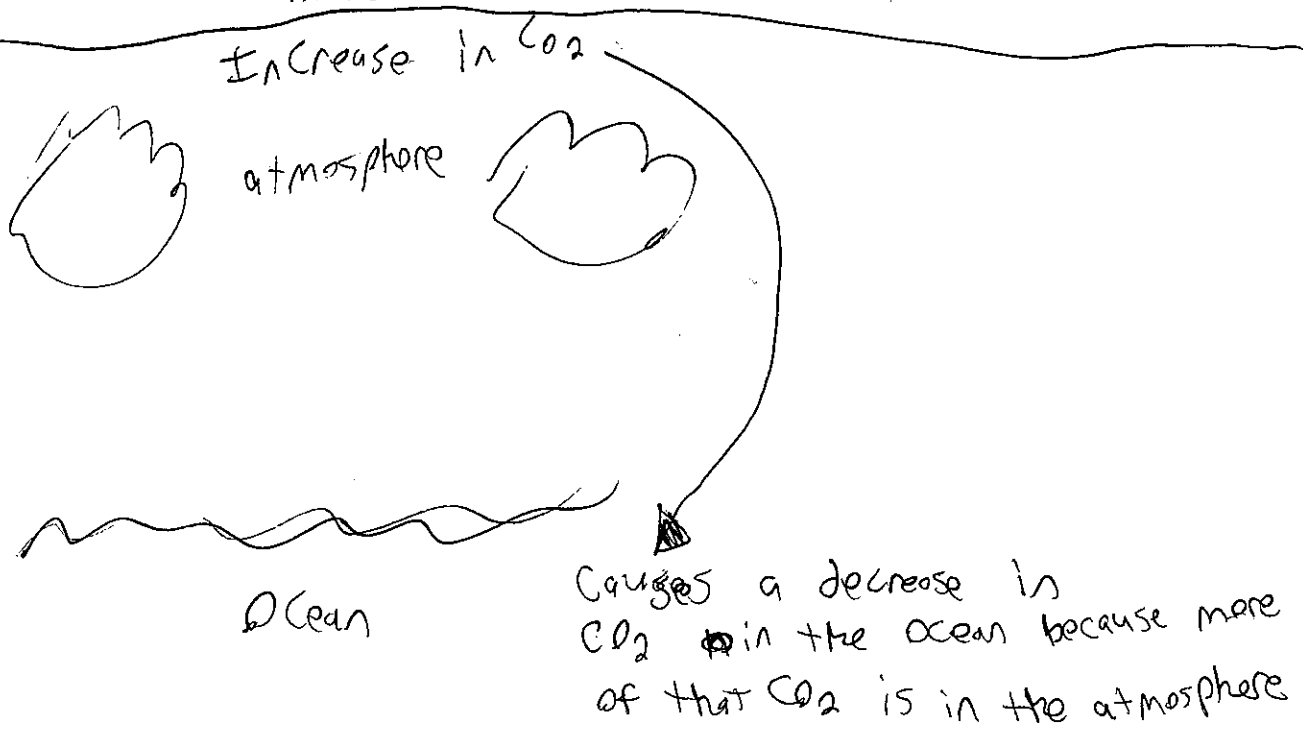 Increase in CO2
atmosphere
Ocean
Causes a decrease in
CO2 in the ocean because more
of that CO2 is in the atmosphere